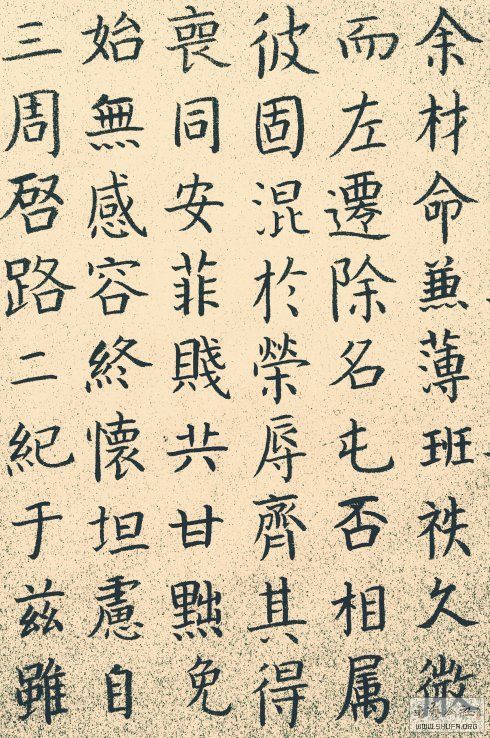 余材命兼薄班祑久微
而左遷除名屯否相属
彼固混於榮辱齊其得
喪同安菲賤共甘黜免
始無感容終懷坦慮自
三周啓路二紀于茲雖
WWW.SHUFA.ORG